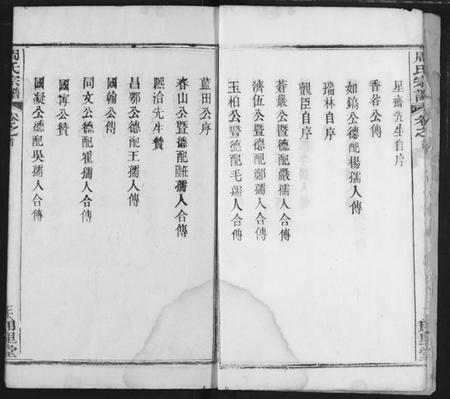 星齋先生自序
香谷公傳
如鎬公德配楊孺人傳
瑞林自序
觀臣自序
蒼嚴公暨德配嚴孺人合傳
濟伍公暨德配鄭孺人合傳
玉柏公暨德配毛孺人合傳
周氏宗譜
藍田公序
春山公暨德配 孺人合傳
熙洽先生贊
昌鄒公德配王孺人傳
國翰公傳
同文公德配霍孺人合傳
國寧公贊
國凝公德配吳孺人合傳
周氏宗譜 卷之首